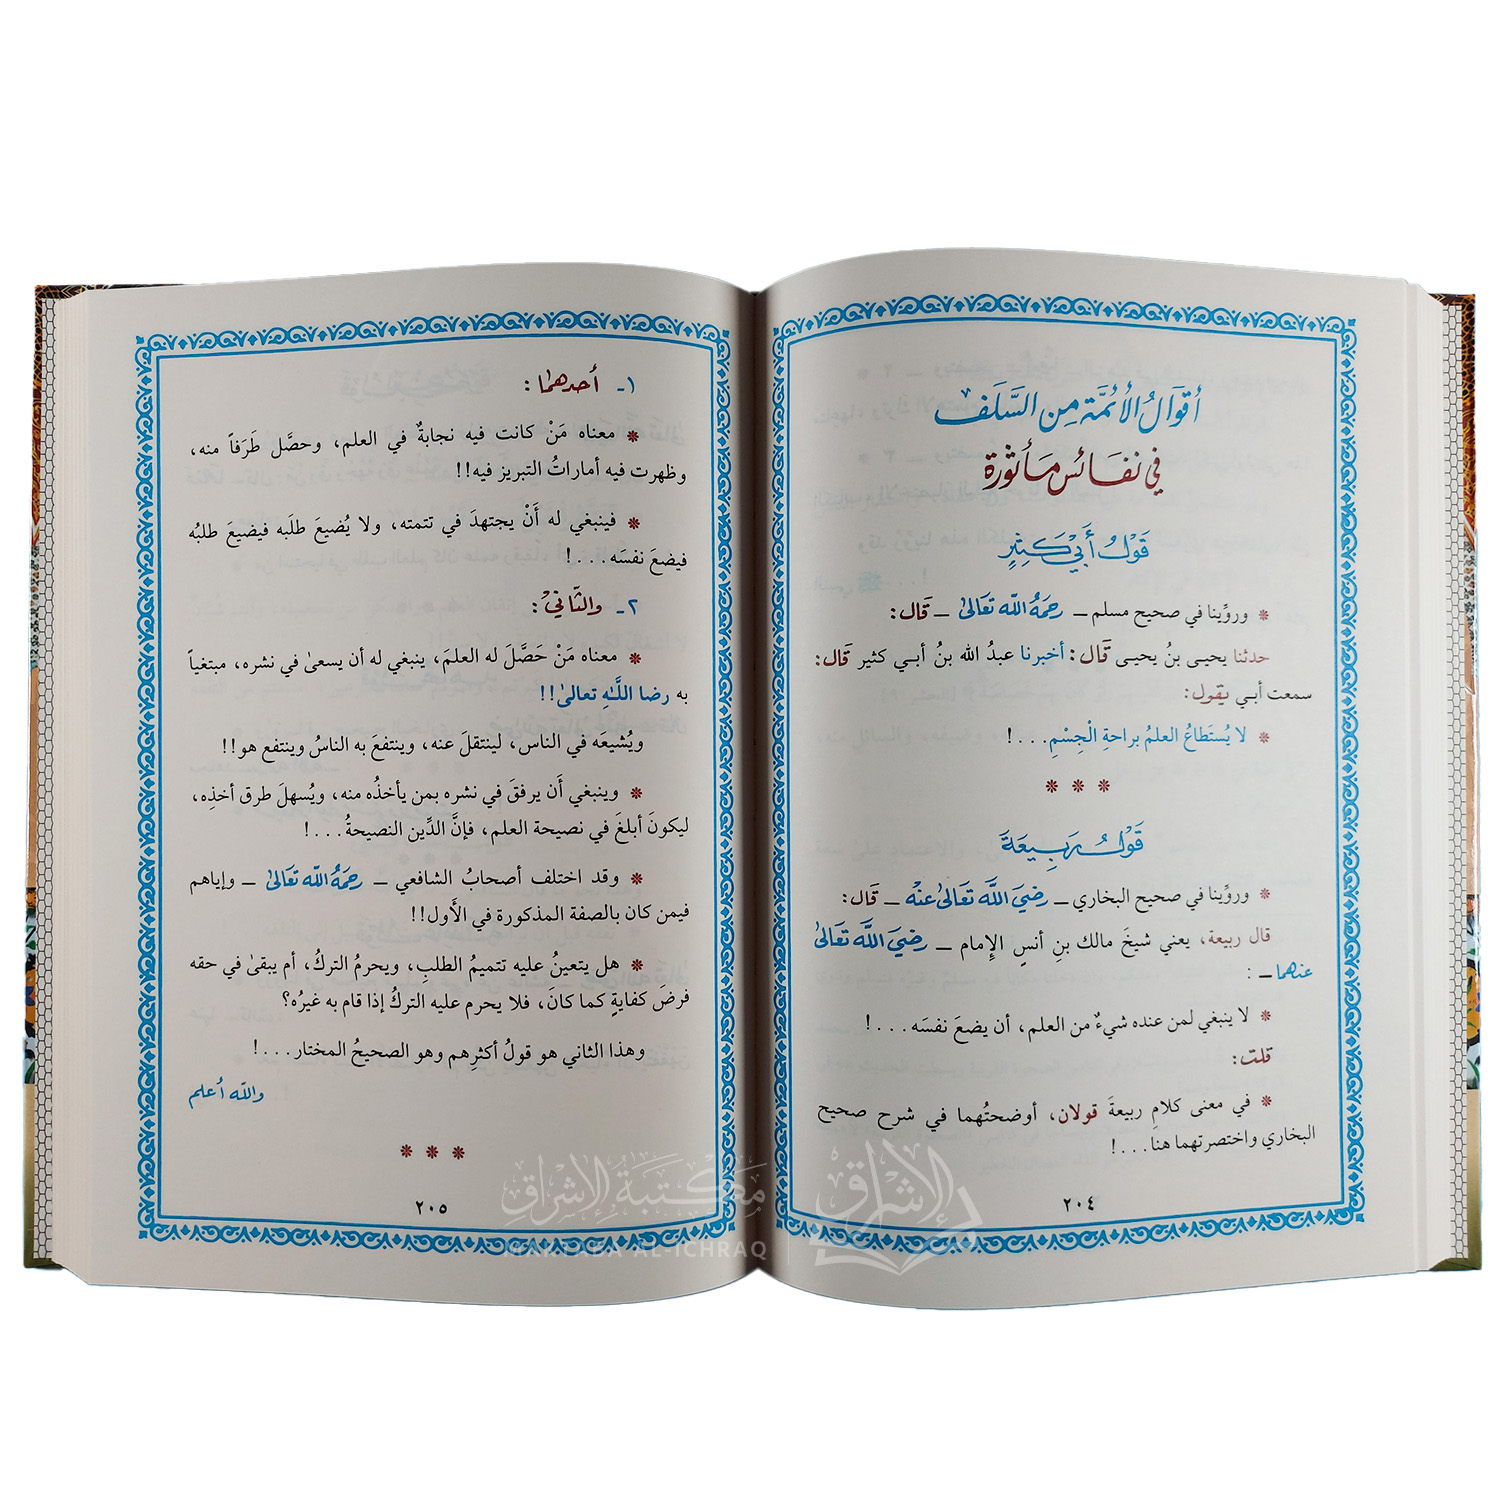 أقوالُ الأئمَّة مِن السَّلَف
في نفائس مأثورة
قَوْلُ أَبي كَثِيرٍ
* وروِّينا في صحيح مسلم ــ رحمَهُ اللّه تعَالىٰ ــ قَال:
حدثنا يحيـى بنُ يحيـى قَال: أخبرنا عبدُ الله بنُ أبـي كثير قَال:
سمعت أبـي يقول:
* لا يُستَطاعُ العلمُ براحةِ الْجِسْمِ. . . !
* * *
قَوْلُ رَبِيعَة
* وروِّينا في صحيح البخاري ــ رضيَ اللَّه تَعَالىٰ عنْه ــ قَال:
قال ربيعة، يعني شيخَ مالك بنِ أنسٍ الإمام ــ رضيَ اللَّه تَعَالىٰ
عنهما ــ :
* لا ينبغي لمن عنده شيءٌ من العلم، أن يضعَ نفسَه. . . !
قلت:
* في معنى كلامِ ربيعةَ قولان، أوضحتُهما في شرح صحيح
البخاري واختصرتهما هنا. . . !
٢٠٤
١ـ أحدهما:
* معناه مَنْ كانت فيه نجابةٌ في العلم، وحصَّل طَرَفاً منه،
وظهرت فيه أماراتُ التبريز فيه!!
* فينبغي له أَنْ يجتهدَ في تتمته، ولا يُضيعَ طلَبه فيضيعَ طلبُه
فيضعَ نفسَه. . . !
٢ـ والثَّاني:
* معناه مَنْ حَصَّلَ له العلمَ، ينبغي له أن يسعىٰ في نشره، مبتغياً
به رضا اللَّه تعالىٰ!!
ويُشيعَه في الناس، لينتقلَ عنه، وينتفعَ به الناسُ وينتفع هو!!
* وينبغي أَن يرفقَ في نشره بمن يأخذُه منه، ويُسهلَ طرق أخذِه،
ليكونَ أبلغَ في نصيحة العلم، فإنَّ الدِّين النصيحةُ. . . !
* وقد اختلف أصحابُ الشافعي ــ رحمَهُ اللّه تعَالىٰ ــ وإياهم
فيمن كان بالصفة المذكورة في الأَول!!
* هل يتعينُ عليه تتميمُ الطلبِ، ويحرمُ التركُ، أم يبقىٰ في حقه
فرضَ كفايةٍ كما كانَ، فلا يحرم عليه التركُ إذا قام به غيرُه؟
وهذا الثاني هو قولُ أكثرِهم وهو الصحيحُ المختار. . . !
واللّه أعلم
* * *
٢٠٥
مكتبة الإشراق
MAKTABA AL-ICHRAQ
الإشراق